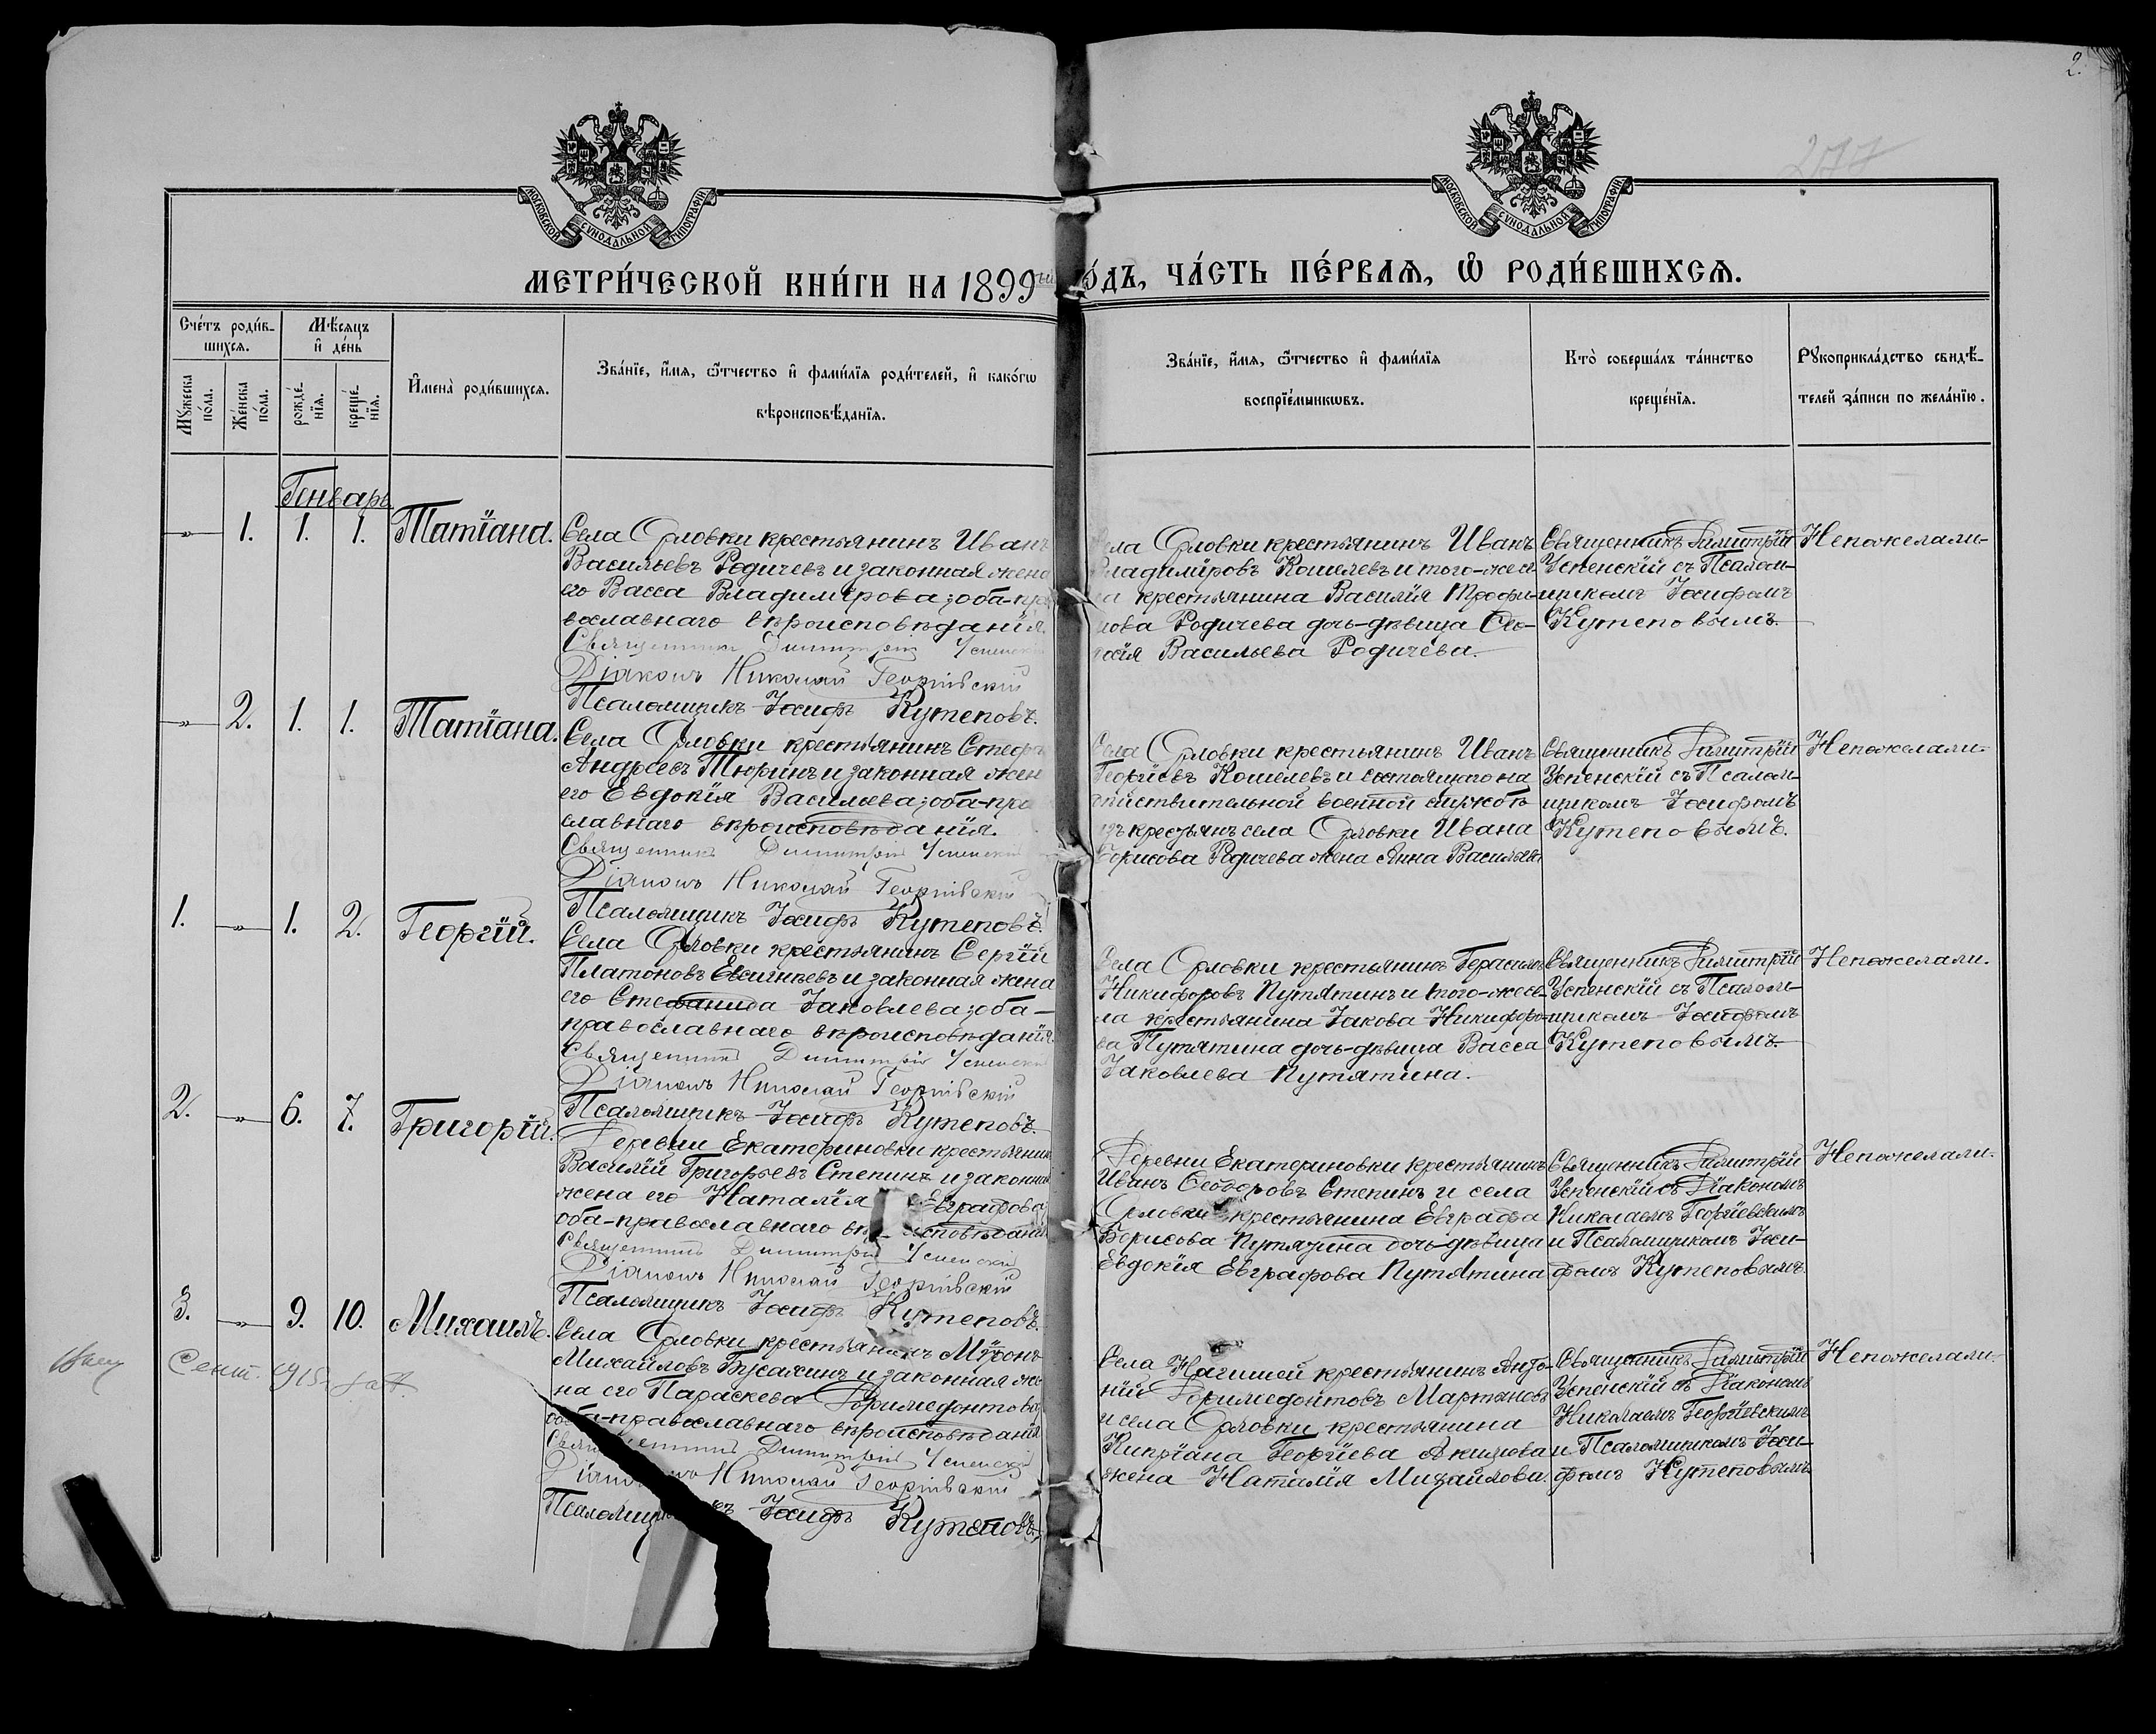 2.
277
МОСКОВСКОЙ СУНОДАЛЬНОЙ ТИПОГРАФІИ
МОСКОВСКОЙ СУНОДАЛЬНОЙ ТИПОГРАФІИ
МЕТРИ́ЧЕСКОЙ КНИ́ГИ НА 1899ый
О́ДЪ, ЧА́СТЬ ПЕ́РВАѦ, Ѡ҆ РОДИ́ВШИХСѦ.
Сче́тъ роди́в-
шихсѧ.
Мꙋ́жеска по́ла.
Же́нска по́ла.
Мѣ́сѧцъ
и҆ де́нь
рожде́-
нїѧ.
креще́-
нїѧ.
И҆мена̀ роди́вшихсѧ.
Зва́нїе, и҆́мѧ, ѻ҆́тчество и҆ фами́лїѧ роди́телей, и҆ како́гѡ
вѣроисповѣ́данїѧ.
Зва́нїе, и҆́мѧ, ѻ҆́тчество и҆ фами́лїѧ
воспрїе́мникѡвъ.
Кто̀ соверша́лъ та́инство
креще́нїѧ.
Рꙋкоприкла́дство свидѣ́-
телей за́писи по жела́нїю.
Генварь
" 1. 1. 1. Татіана.
Села Орловки крестьянинъ Иванъ
Васильевъ Родичевъ и законная жена
его Васса Владимірова; оба-пра
вославнаго вѣроисповѣданія.
Священникъ Димитрій Успенскій
Діаконъ Николай Георгіевскій
Псаломщикъ Іосифъ Кутеповъ.
ела Орловки крестьянинъ Иванъ
Владиміровъ Кошелевъ и того-же се
ла крестьянина Василія Трофи-
мова Родичева дочь-дѣвица Ѳео-
Васильева Родичева.
Священникъ Димитрій
Успенскій съ Псалом-
щикомъ Іосифомъ
Кутеповымъ.
Непожелали.
" 2. 1. 1. Татіана.
Села Орловки крестьянинъ Стефа
Андреевъ Тюринъ и законная жен
его Евдокія Васильева; оба-пра
славнаго вѣроисповѣданія.
Священникъ Димитрій Успенскій
Діаконъ Николай Георгіевскій
Псаломщикъ Іосифъ Кутеповъ.
Села Орловки крестьянинъ Иванъ
Георгіевъ Кошелевъ и состоящаго на
дѣйствительной военной службѣ
изъ крестьянъ села Орловки Ивана
Борисова Родичева жена Анна Васильева
Священникъ Димитрій
Успенскій съ Псалом-
щикомъ Іосифомъ
Кутеповымъ.
Непожелали.
1. " 1. 2. Георгій.
Села Орловки крестьянинъ Сергій
Платоновъ Евсигнеевъ и законная жена
его Стефанида Іаковлева; оба-
православнаго вѣроисповѣданія.
Священникъ Димитрій Успенскій
Діаконъ Николай Георгіевскій
Псаломщикъ Іосифъ Кутеповъ.
Села Орловки крестьянинъ Герасимъ
Никифоровъ Путятинъ и того-же се-
ла крестьянина Іакова Никифоро-
ва Путятина дочь-дѣвица Васса
Іаковлева Путятина.
Священникъ Димитрій
Успенскій съ Псалом-
щикомъ Іосифомъ
Кутеповымъ.
Непожелали.
2. " 6. 7. Григорій.
Деревни Екатериновки крестьянинъ
Василій Григорьевъ Степинъ и законная
жена его Наталія Евграфова
оба-православнаго вѣ исповѣданія
Священникъ Димитрій Успенскій
Діаконъ Николай Георгіевскій
Псаломщикъ Іосифъ Кутеповъ.
Деревни Екатериновки крестьянинъ
Иванъ Ѳеодоровъ Степинъ и села
Орловки крестьянина Евграфа
Борисова Путятина дочь-дѣвица
Евдокія Евграфова Путятина
Священникъ Димитрій
Успенскій съ Діакономъ
Николаемъ Георгіевскимъ
и Псаломщикомъ Іоси-
фомъ Кутеповымъ.
Непожелали.
3. " 9. 10. Михаилъ.
Сент. 1915
Села Орловки крестьянинъ Мѵронъ
Михайловъ Бусакинъ и законная же
на его Параскева Доримедонтова
оба-православнаго вѣроисповѣданія
Священникъ Димитрій Успенскій
Діаконъ Николай Георгіевскій
Псаломщикъ Іосифъ Кутеповъ.
Села Нагишей крестьянинъ Анто-
ній Доримедонтовъ Мартыновъ
и села Орловки крестьянина
Кипріана Георгіева Акимова
жена Наталія Михайлова.
Священникъ Димитрій
Успенскій съ Діакономъ
Николаемъ Георгіевскимъ
и Псаломщикомъ Іоси-
фомъ Кутеповымъ
Непожелали.